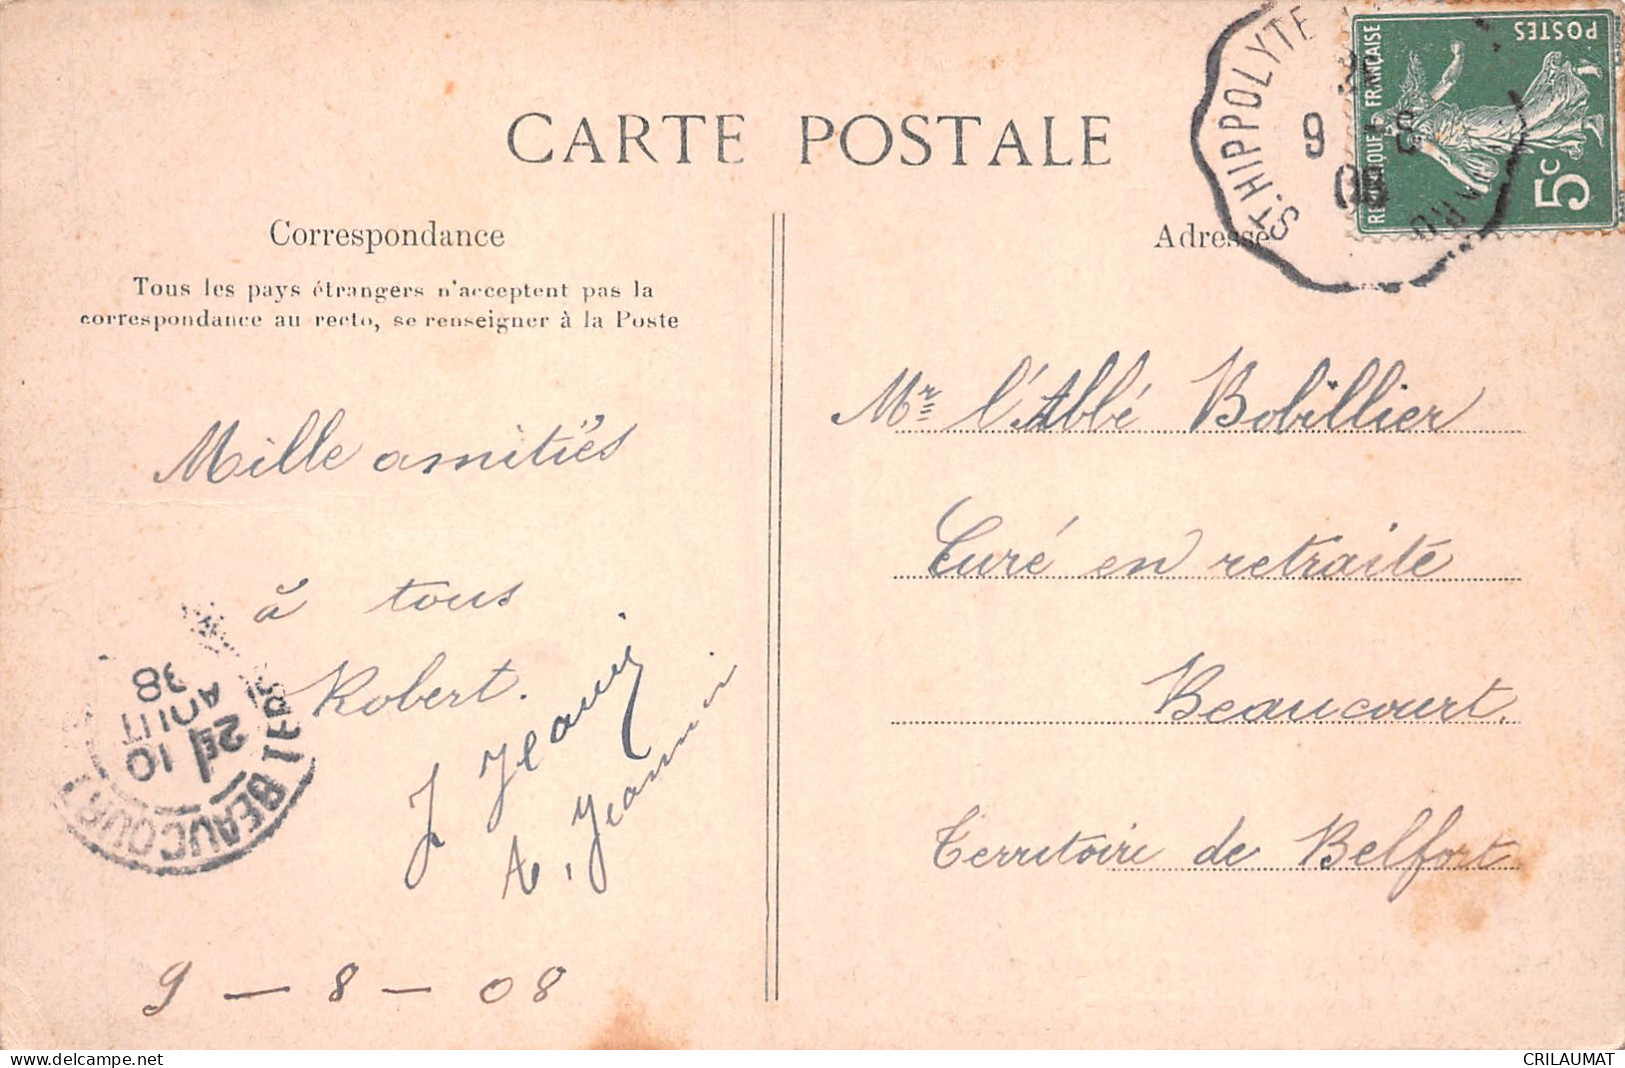 CARTE POSTALE
Correspondance
Tous les pays étrangers n'acceptent pas la
correspondance au recto, se renseigner à la Poste
Adresse
ST. HIPPOLYTE
9 - 8
08
REPUBLIQUE FRANÇAISE
POSTES
5c
Mille amitiés
à tous
Robert.
J Jeannin
A. Jeannin
9 - 8 - 08
Mr l'Abbé Bobillier
Curé en retraite
Beaucourt.
Territoire de Belfort
BEAUCOURT
2E 10
AOUT
08
CRILAUMAT